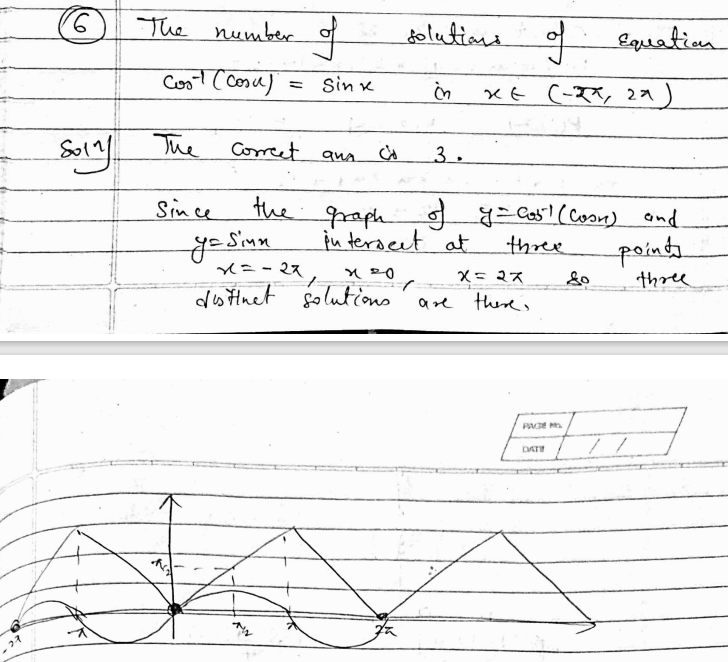 6 The number of solutions of Equation
cos⁻¹(cosx) = sinx in x ∈ (-2π, 2π)
Soln The correct ans is 3.
Since the graph of y=cos⁻¹(cosx) and
y=sinx intersect at three points
x=-2π, x=0, x=2π so three
distinct solutions are there.
PAGE No.
DATE / /
π/2
-2π -π π/2 π 2π